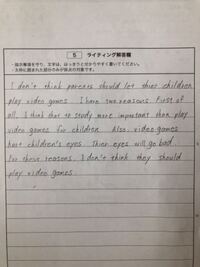 5 ライティング解答欄
・指示事項を守り、文字は、はっきりと分かりやすく書いてください。
・太枠に囲まれた部分のみが採点の対象です。
I don't think parents should let thier children
play video games. I have two reasons. First of
all, I think that to study more important than play
video games for children. Also, video games
hurt children's eyes. Thier eyes will go bad.
For these reasons, I don't think they should
play video games.